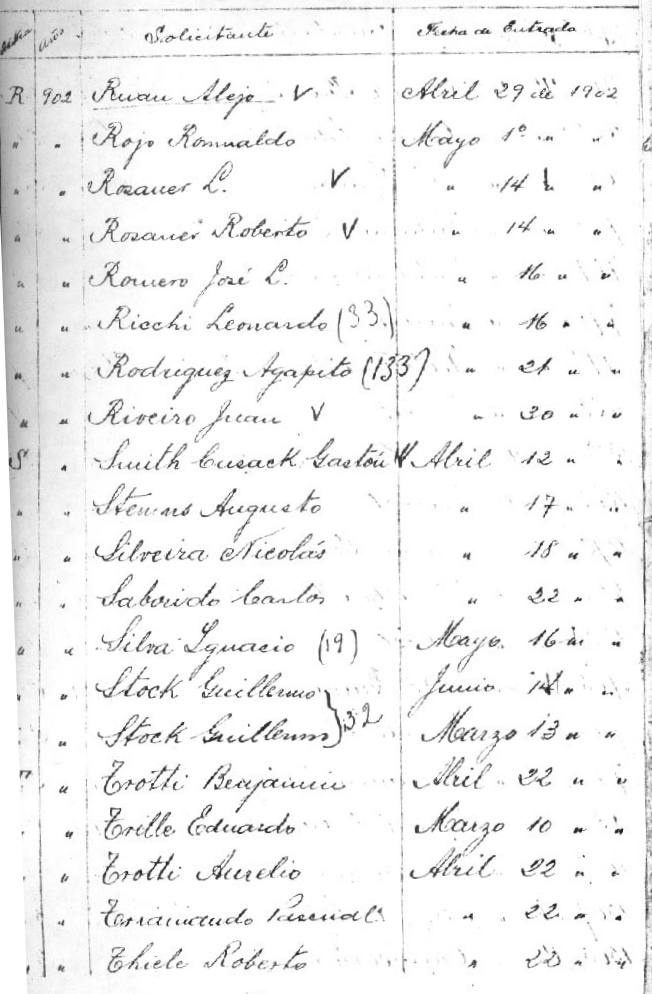 Letra Años Solicitante Fecha de Entrada
R 902 Ruau Alejo V " Abril 29 de 1902
" " Rojo Romualdo Mayo 1º " "
" " Rosauer L. V " 14 " "
" " Rosauer Roberto V " 14 " "
" " Romero José L. " 16 " "
" " Ricchi Leonardo (33.) " 16 " "
" " Rodriguez Agapito (133) " 21 " "
" " Riveiro Juan V " 30 " "
S " Smith Cusack Gastón V Abril 12 " "
" " Augusto " 17 " "
" " Silveira Nicolás " 18 " "
" " Saborido Carlos " 22 " "
" " Silva Ygnacio (19) Mayo 16 " "
" " Stock Guillermo Junio 14 " "
" " Stock Guillermo } 32 Marzo 13 " "
T " Trotti Benjamin Abril 22 " "
" Trille Eduardo Marzo 10 " "
" Trotti Aurelio Abril 22 " "
" Terramando Pascual " 22 " "
" " Thiele Roberto " 22 " "